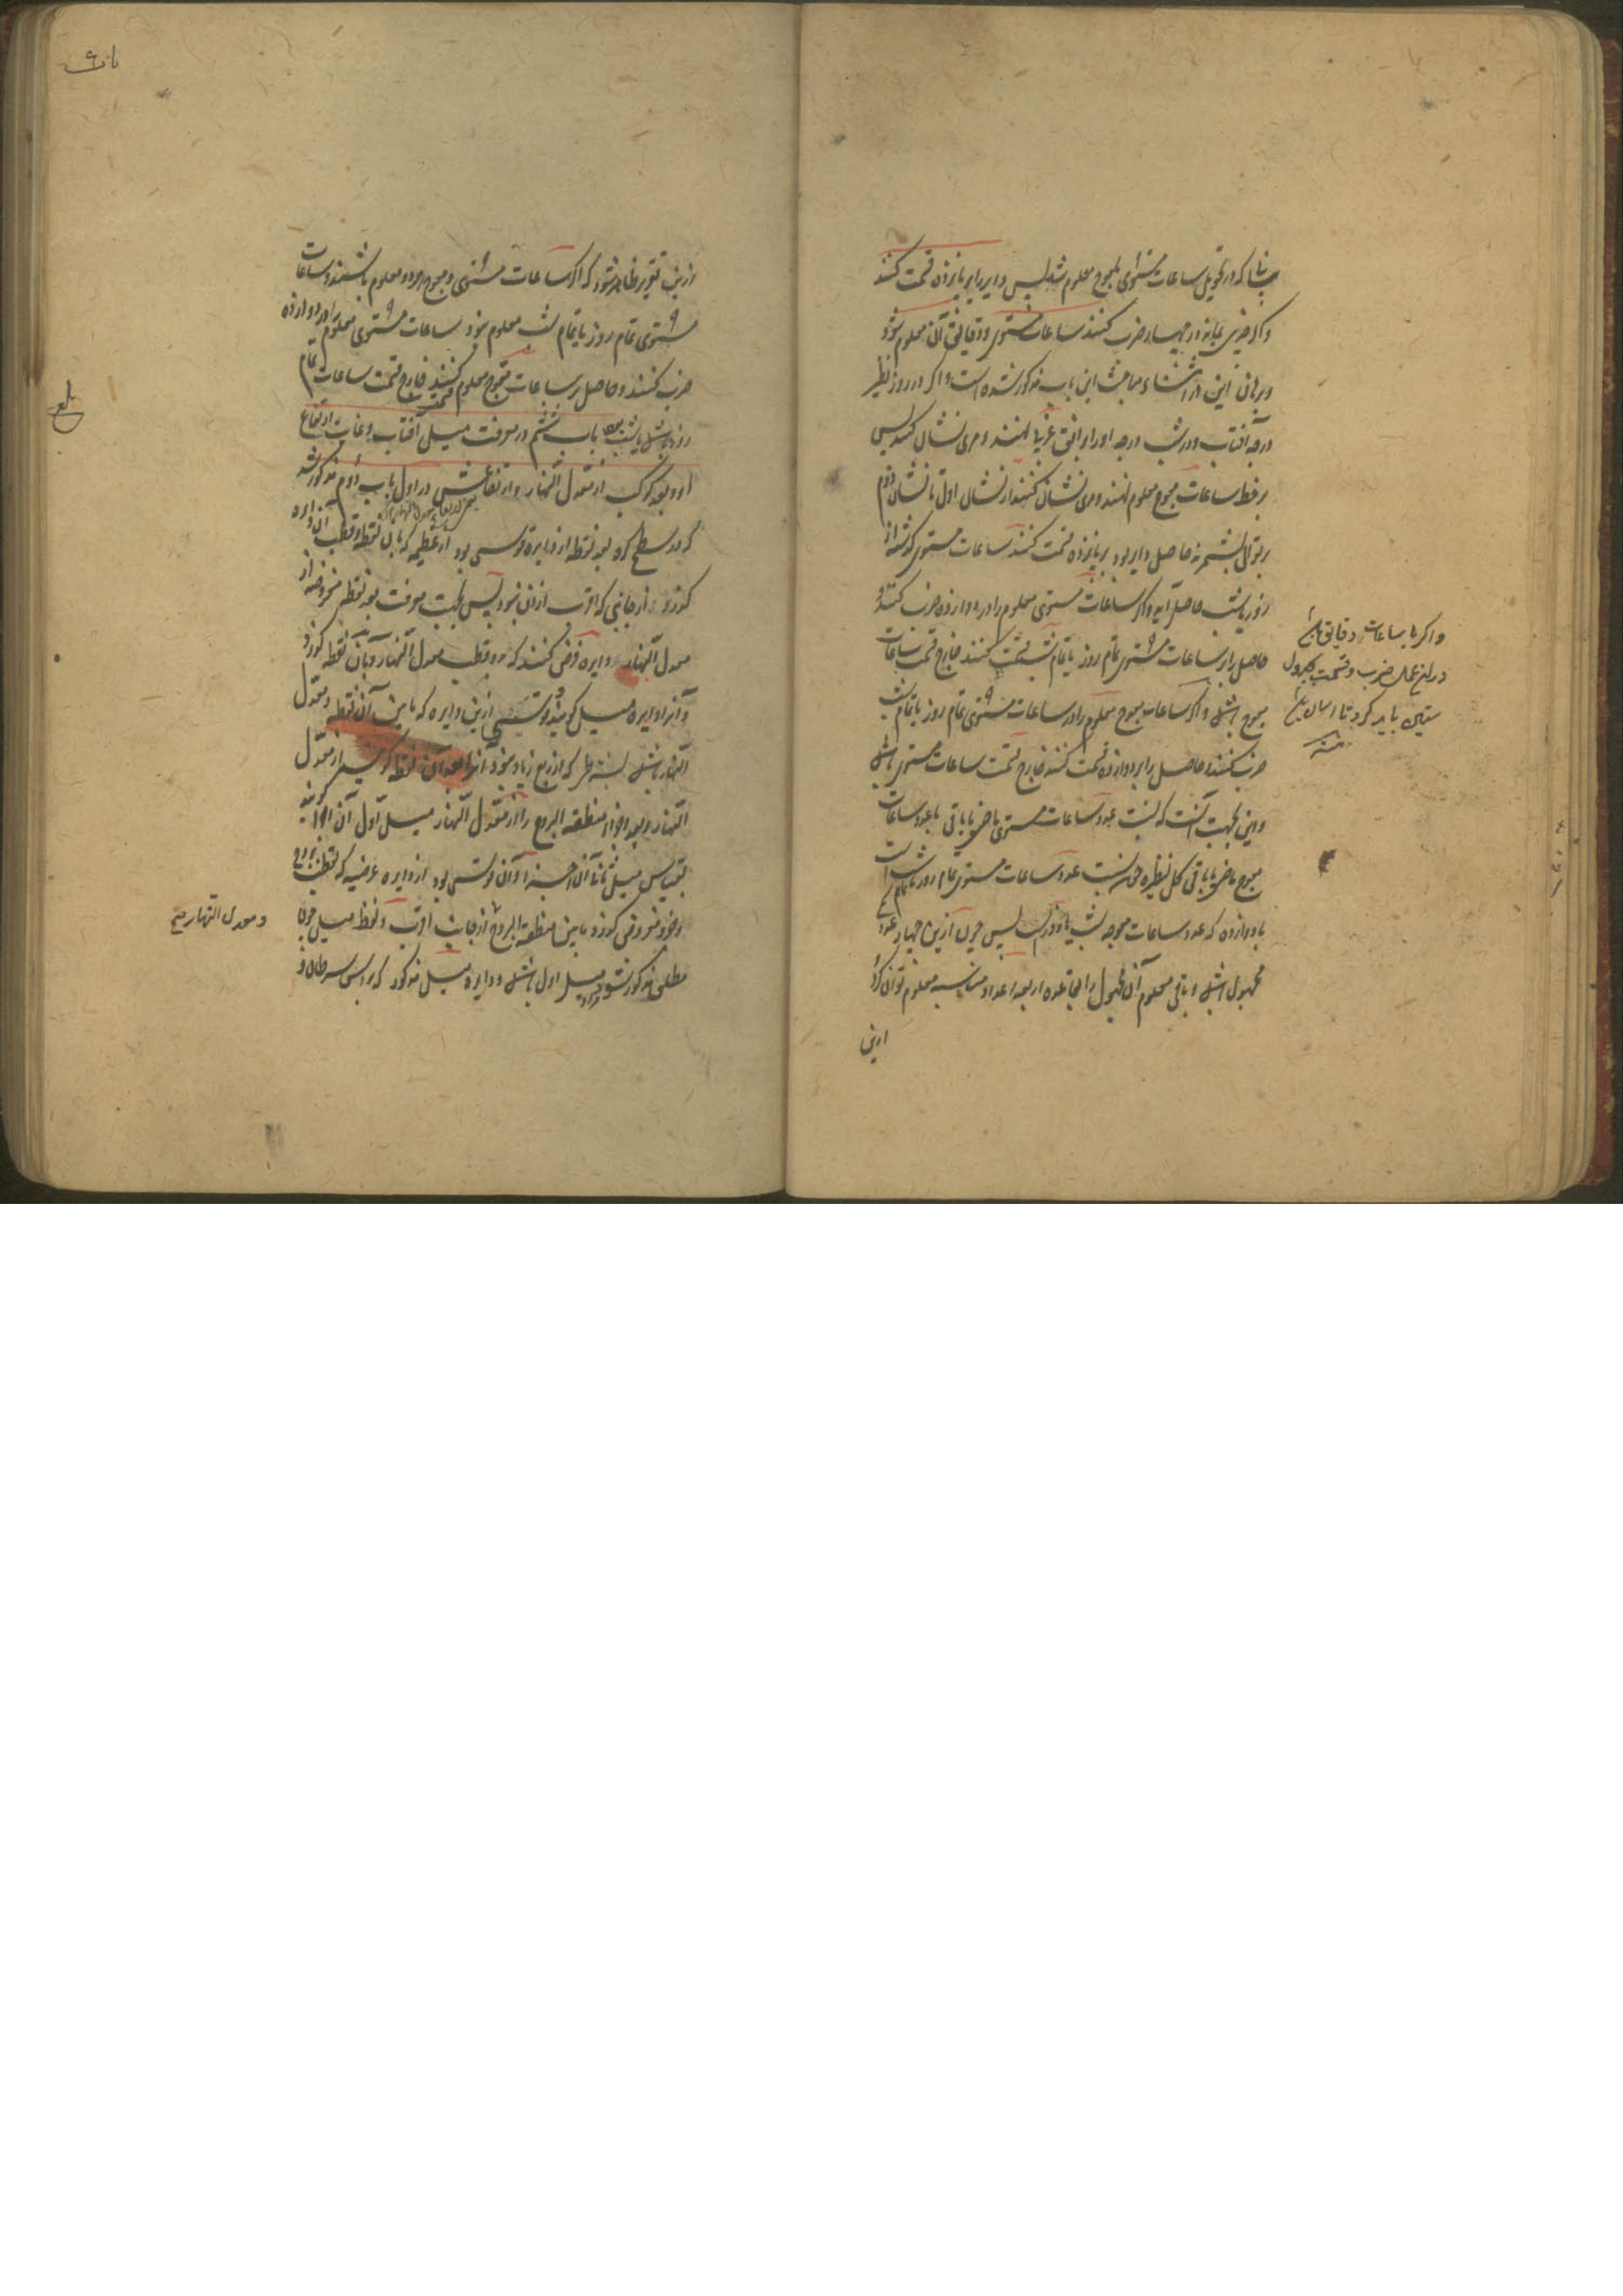 چنانکه در تحویل ساعات مستوی بمعوج معلوم شد پس دایر را بر پانزده قسمت کنند
و اگر چیزی بماند در چهار ضرب کنند ساعات مستوی و دقایق آن معلوم شود
و برهان این در اثناء مباحث این باب مذکور شده است و اگر در روز نظیر
درجه آفتاب و در شب درجه او را بر افق غربی نهند و مری نشان کنند پس
بر خط ساعات معوج معلوم نهند و مری نشان کنند از نشان اول تا نشان دوم
بر توالی بشمرند حاصل دایر بود بر پانزده قسمت کنند ساعات مستوی گذشته از
روز یا شب حاصل آید و اگر ساعات مستوی معلوم را در دوازده ضرب کنند و
حاصل را بر ساعات مستوی تمام روز یا تمام شب قسمت کنند خارج قسمت ساعات
معوج باشد و اگر ساعات معوج معلوم را در ساعات مستوی تمام روز یا تمام شب
ضرب کنند و حاصل را بر دوازده قسمت کنند خارج قسمت ساعات مستوی باشد
و این بجهت آنست که نسبت عدد ساعات مستوی ماضی یا باقی با عدد ساعات
معوج ماضی یا باقی کل نظیره چون نسبت عدد ساعات مستوی تمام روز یا تمام شب است
با دوازده که عدد ساعات معوجه شب یا روز است پس چون ازین چهار عدد
مجهول باشد و باقی معلوم آن مجهول را بقاعده اربعه اعداد متناسبه معلوم توان کرد
ازین
و اگر با ساعات دقایق باشد
در این عمل ضرب و قسمت بجدول
ستین باید کرد تا آسان باشد
منه
ازین تقریر ظاهر شود که اگر ساعات مستوی و معوج هر دو معلوم باشند و ساعات
مستوی تمام روز یا تمام شب معلوم نبود ساعات مستوی معلوم را در دوازده
ضرب کنند و حاصل بر ساعات معوج معلوم قسمت کنند خارج قسمت ساعات تمام
روز باشد یا شب باب ششم در معرفت میل آفتاب و غایت ارتفاع
او و بعد کوکب از معدل النهار و ارتفاعش در اول باب دوم مذکور شد
که در سطح کره بعد نقطه از دایره قوسی بود از عظیمه که بآن نقطه و قطب آن دایره
گذرد از جانبی که اقرب ازان نبود پس بجهت معرفت بعد نقطه مفروضه از
معدل النهار دایره فرض کنند که بدو قطب معدل النهار و بآن نقطه گذرد
و آنرا دایره میل گویند و قوسی ازین دایره که مابین آن نقطه و معدل
النهار باشد بشرطی که از ربع زیاد نبود آنرا بعد آن نقطه گویند از معدل
النهار و بعد اجزاء منطقه البروج را از معدل النهار میل اول آن اجزا گویند
بقیاس میل ثانی آن اجزا و آن قوسی بود از دایره عرضیه که بقطب بروج
و جزو مفروض گذرد مابین منطقة البروج از جانب اقرب و لفظ میل چون
مطلق مذکور شود مراد میل اول باشد و دایره میل مذکور که براس سرطان و
و معدل النهار صح
بلغ